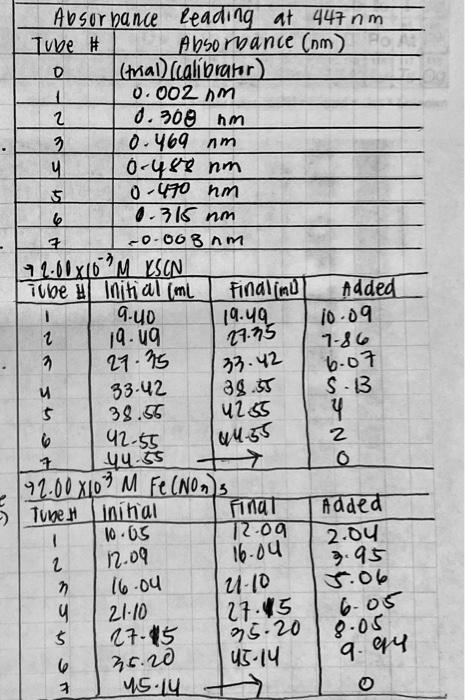 Absorbance Reading at 447 nm
Tube # Absorbance (nm)
0 (trial) (calibrator)
1 0.002 nm
2 0.308 nm
3 0.469 nm
4 0.488 nm
5 0.470 nm
6 0.315 nm
7 -0.008 nm
→ 2.00 x 10⁻³ M KSCN
Tube # Initial (mL Final (mL) Added
1 9.40 19.49 10.09
2 19.49 27.35 7.86
3 27.35 33.42 6.07
4 33.42 38.55 5.13
5 38.55 42.55 4
6 42.55 44.55 2
7 44.55 → 0
→ 2.00 x 10⁻³ M Fe(NO3)3
Tube # Initial Final Added
1 10.05 12.09 2.04
2 12.09 16.04 3.95
3 16.04 21.10 5.06
4 21.10 27.15 6.05
5 27.15 35.20 8.05
6 35.20 45.14 9.94
7 45.14 → 0